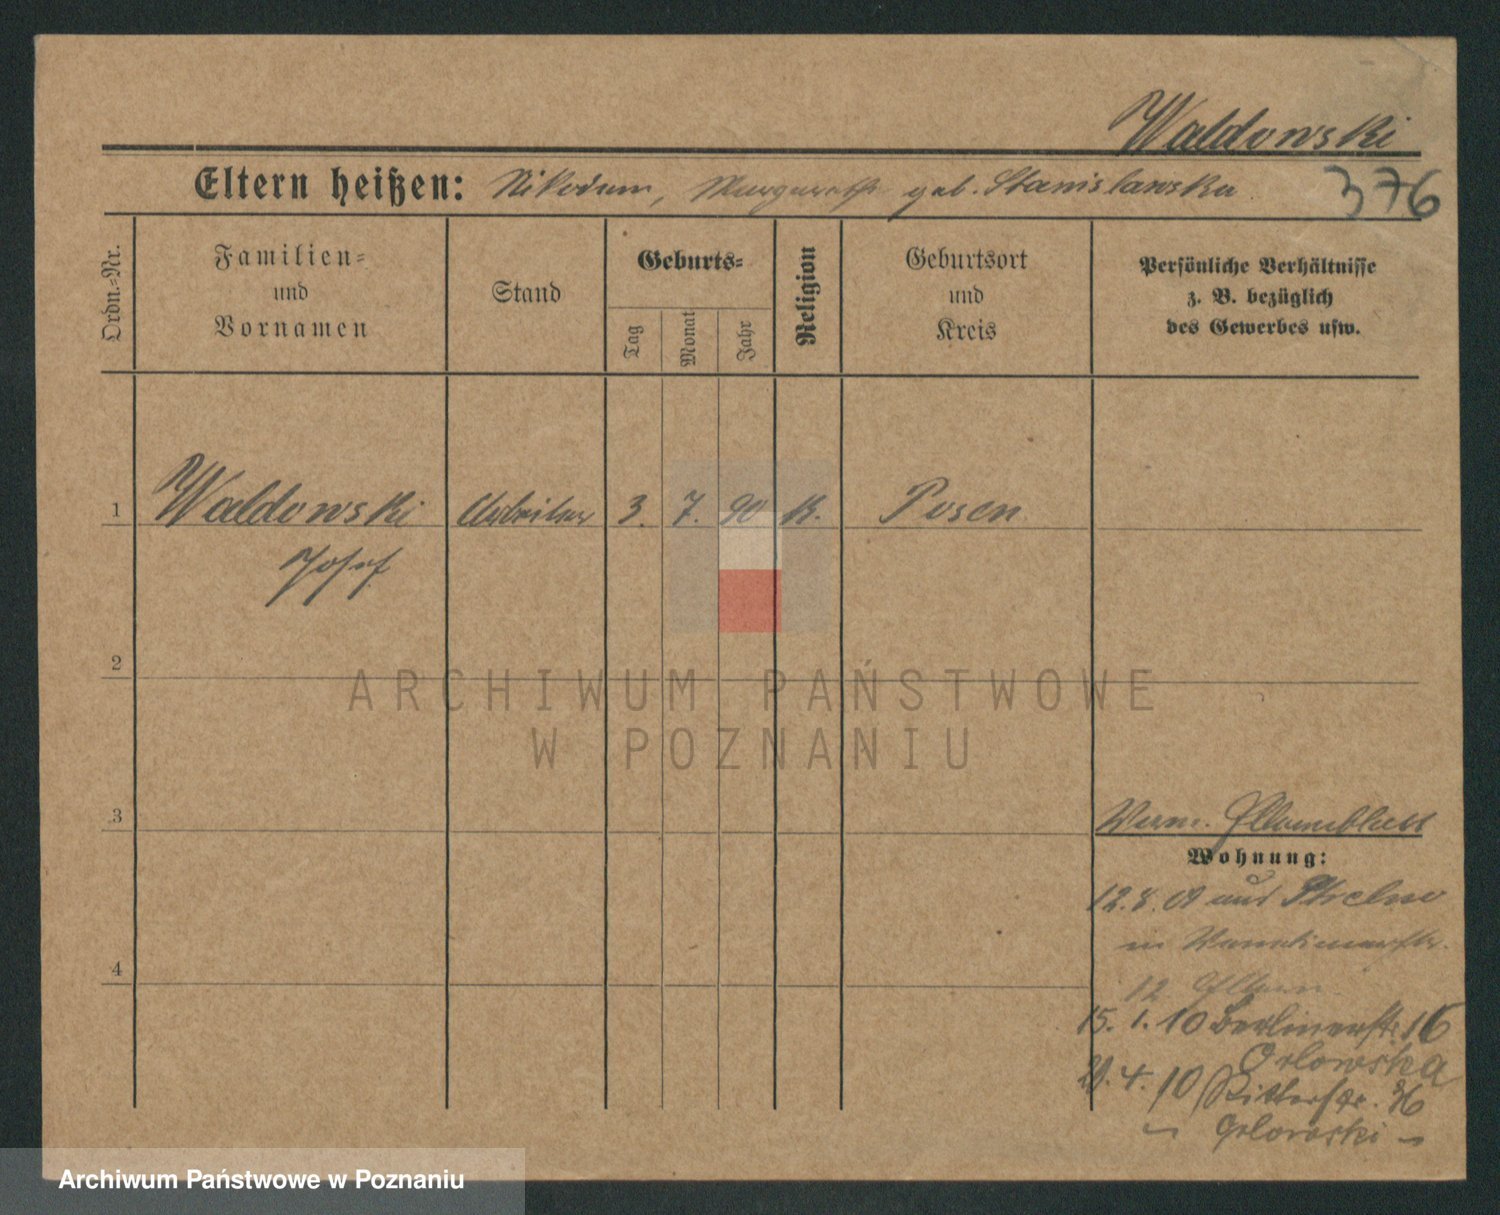 Waldowski
Eltern heißen: Nikodem, Margareth geb. Stanislawska
376
Ordn.-Nr.
Familien-
und
Vornamen
Stand
Geburts-
Tag
Monat
Jahr
Religion
Geburtsort
und
Kreis
Persönliche Verhältnisse
z. B. bezüglich
des Gewerbes usw.
1 Waldowski Arbeiter 3. 7. 90 K. Posen
Josef
2
ARCHIWUM PAŃSTWOWE
W POZNANIU
3
Wohnung:
aus Strelno
4
12 Eltern
15. 1. 10 Berlinerstr. 16
Orlowska
4. 10 Ritterstr. 36
Orlowski
Archiwum Państwowe w Poznaniu